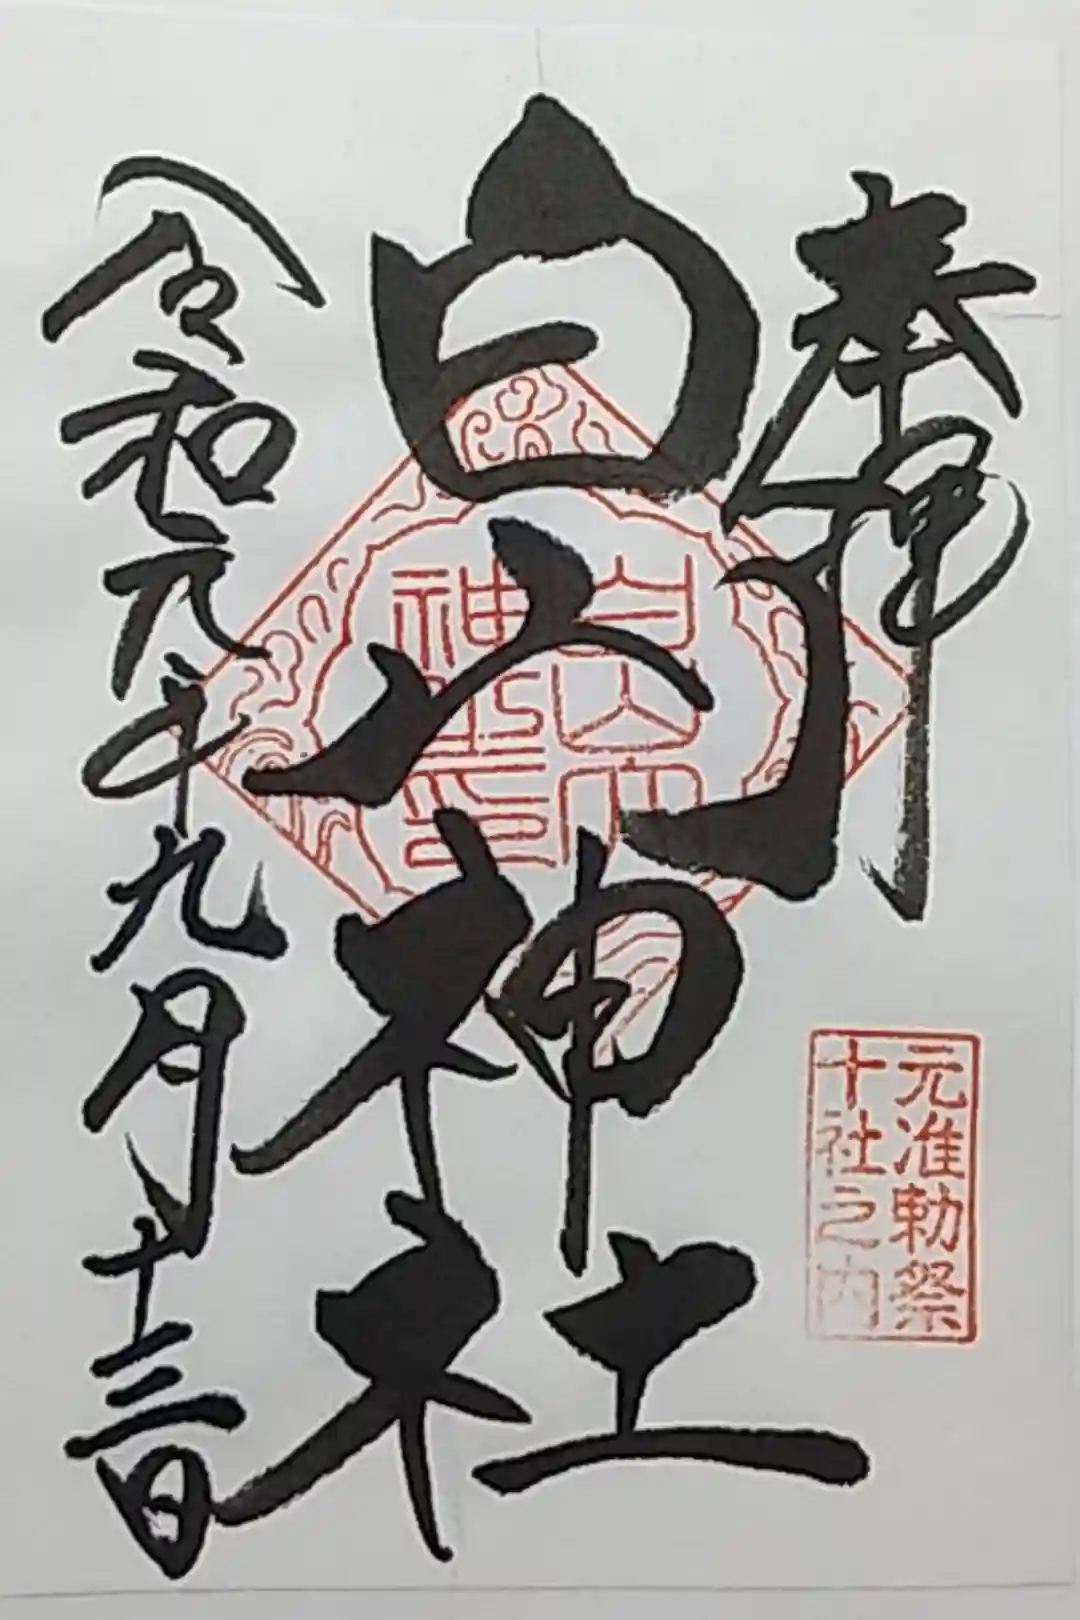 奉拝
白山神社
令和元年九月十三日
白山
神社印
元准勅祭
十社之内